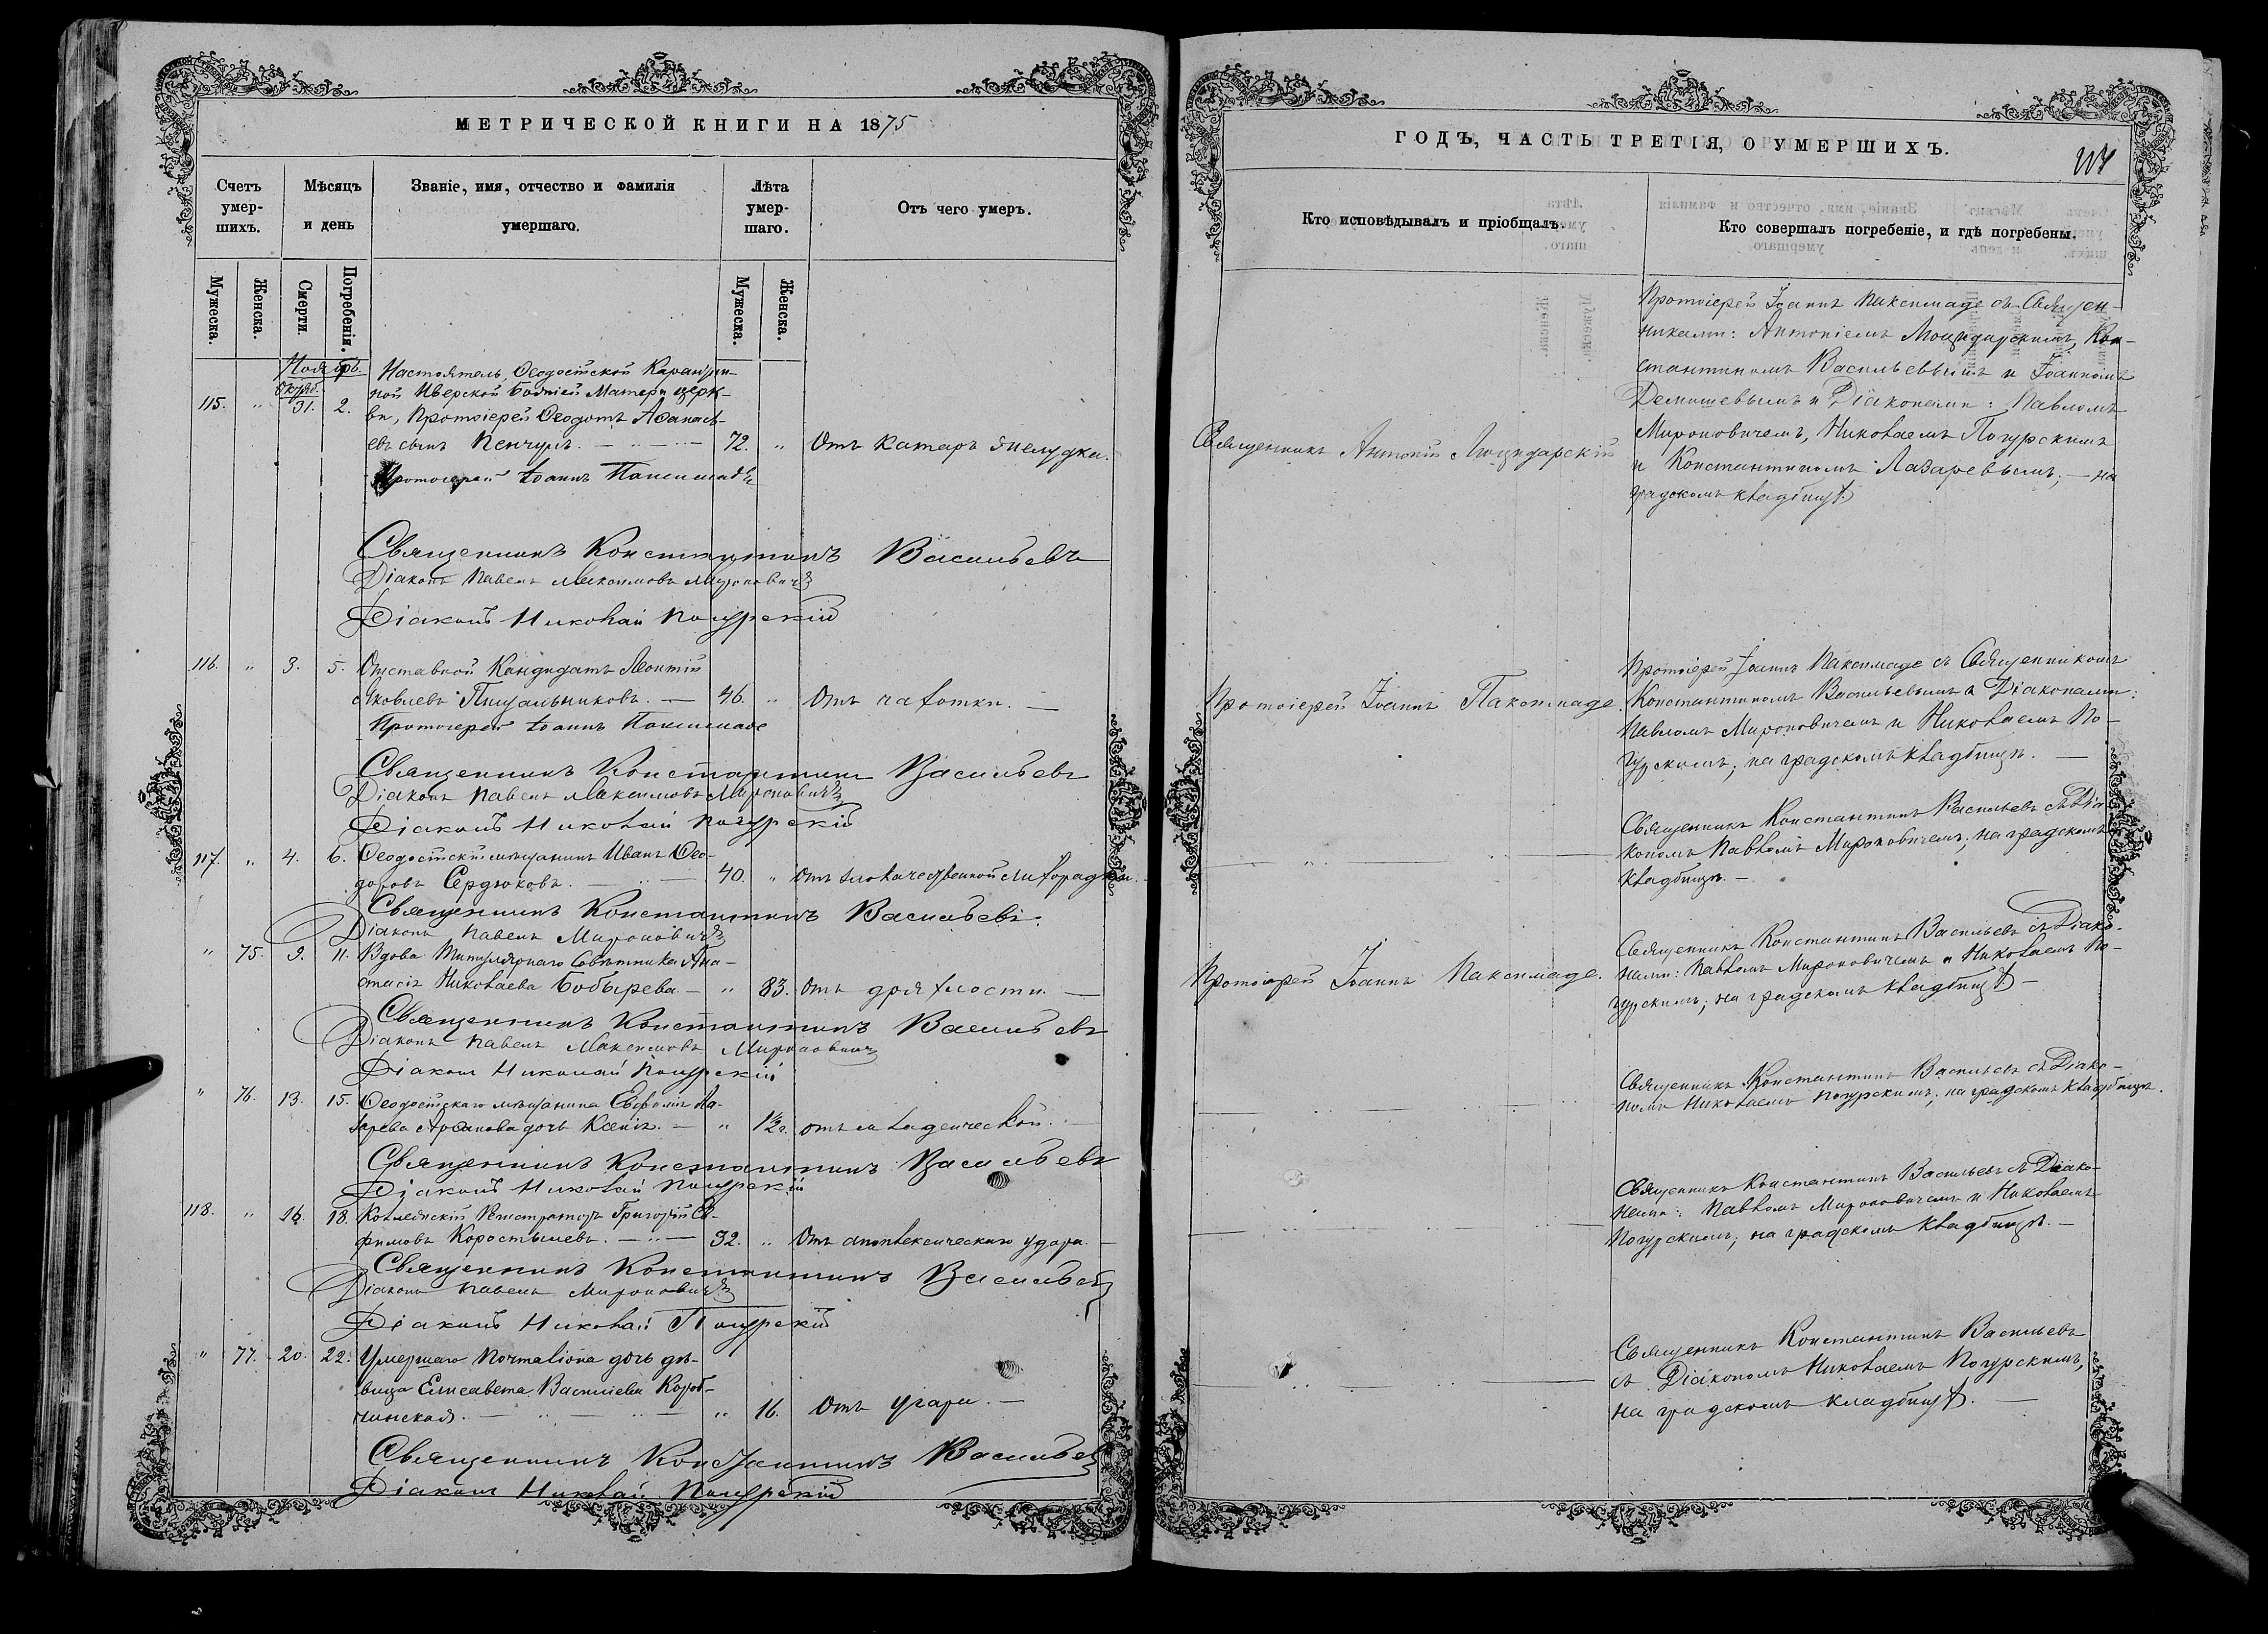 МЕТРИЧЕСКОЙ КНИГИ НА 1875
Счетъ умер-шихъ.
Мѣсяцъ и день
Званіе, имя, отчество и фамилія умершаго.
Лѣта умер-шаго.
Отъ чего умеръ.
Мужеска.
Женска.
Смерти.
Погребенія.
Мужеска.
Женска.
Ноябрь.
Октяб.
115. " 31. 2.
Настоятель Ѳеодосійской Каранти-
ной Иверской Божіей Матери церк-
ви, Протоіерей Ѳеодотъ Аѳанась-
евъ сынъ Пенчулъ. 72. " Отъ катара желудка.
Протоіерей Іоаннъ Паксимаде
Священникъ Константинъ Васильевъ
Діаконъ Павелъ Максимовъ Мироновичъ
Діаконъ Николай Погурскій
116. " 3. 5. Отставной Кандидатъ Леонтій
Яковлевъ Пищальниковъ. 46. " Отъ чахотки.
Протоіерей Іоаннъ Паксимаде
Священникъ Константинъ Васильевъ
Діаконъ Павелъ Максимовъ Мироновичъ
Діаконъ Николай Погурскій
117. " 4. 6. Ѳеодосійскій мѣщанинъ Иванъ Ѳео-
доровъ Сердюковъ. 40. " Отъ злокачественной лихорадки.
Священникъ Константинъ Васильевъ.
Діаконъ Павелъ Мироновичъ
" 75. 9. 11. Вдова Титулярнаго Совѣтника Ана-
стасія Николаева Бобырева " 83. Отъ дряхлости.
Священникъ Константинъ Васильевъ
Діаконъ Павелъ Максимовъ Мироновичъ
Діаконъ Николай Погурскій
" 76. 13. 15. Ѳеодосійскаго мѣщанина Евфимія Ла-
зарева дочь Ксенія. " 1½ г. отъ младенческой.
Священникъ Константинъ Васильевъ
Діаконъ Николай Погурскій
118. " 16. 18. Коллежскій Регистраторъ Григорій Ев-
фимовъ Коростылевъ. 32. " Отъ апоплексическаго удара.
Священникъ Константинъ Васильевъ
Діаконъ Павелъ Мироновичъ
Діаконъ Николай Погурскій
" 77. 20. 22. Умершаго дочь дѣ-
вица Елисавета Василіева Короб-
чинская. " 16. Отъ угара.
Священникъ Константинъ Васильевъ
Діаконъ Николай Погурскій
ГОДЪ, ЧАСТЬ ТРЕТІЯ, О УМЕРШИХЪ.
Кто исповѣдывалъ и пріобщалъ.
Кто совершалъ погребеніе, и гдѣ погребены.
Священникъ Антоній
Протоіерей Іоаннъ Паксимаде съ Священ-
никами: Антоніемъ Кон-
стантиномъ Васильевымъ и Іоанномъ
Демишевымъ и Діаконами: Павломъ
Мироновичемъ, Николаемъ Погурскимъ
и Константиномъ Лазаревымъ; на
градскомъ кладбищѣ
Протоіерей Іоаннъ Паксимаде.
Протоіерей Іоаннъ Паксимаде съ Священникомъ
Константиномъ Васильевымъ и Діаконами:
Павломъ Мироновичемъ и Николаемъ По-
гурскимъ; на градскомъ кладбищѣ.
Священникъ Константинъ Васильевъ съ Діа-
кономъ Павломъ Мироновичемъ; на градскомъ
кладбищѣ.
Протоіерей Іоаннъ Паксимаде.
Священникъ Константинъ Васильевъ съ Діако-
нами: Павломъ Мироновичемъ и Николаемъ По-
гурскимъ; на градскомъ кладбищѣ.
Священникъ Константинъ Васильевъ съ Діако-
номъ Николаемъ Погурскимъ; на градскомъ кладбищѣ.
Священникъ Константинъ Васильевъ съ Діако-
нами: Павломъ Мироновичемъ и Николаемъ
Погурскимъ; на градскомъ кладбищѣ.
Священникъ Константинъ Васильевъ
съ Діакономъ Николаемъ Погурскимъ,
на градскомъ кладбищѣ.